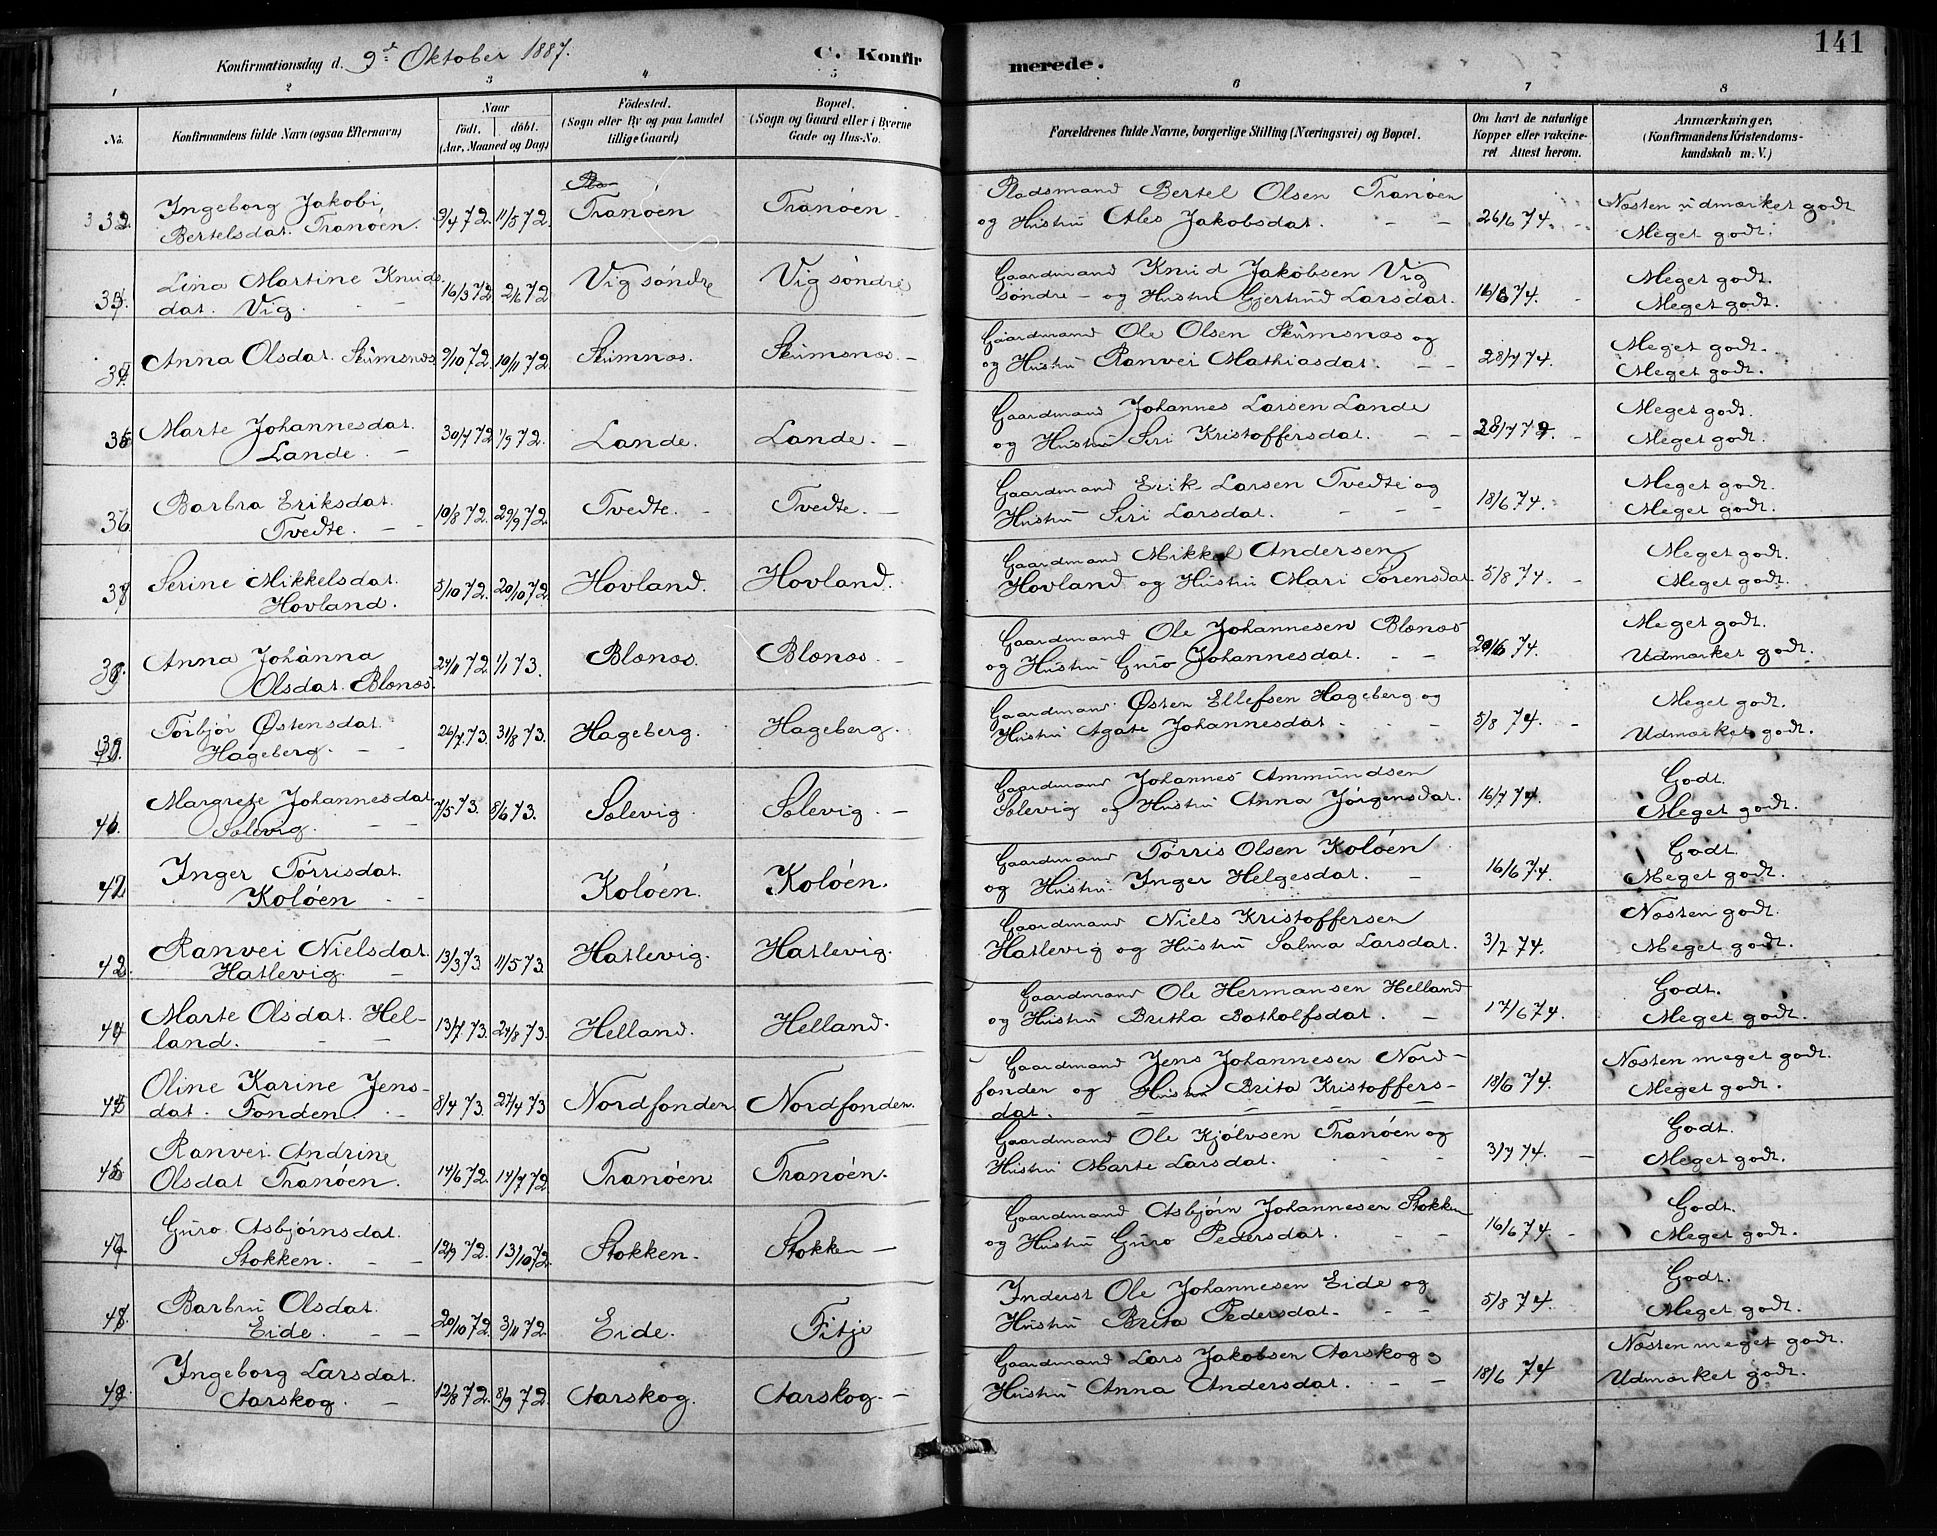 141
Konfirmationsdag d. 9de Oktober 1887.
C. Konfirmerede.
1 2 3 4 5 6 7 8
No.
Konfirmandens fulde Navn (ogsaa Efternavn)
Naar
födt. döbt.
(Aar, Maaned og Dag)
Födested.
(Sogn eller By og paa Landet
tillige Gaard)
Bopæl.
(Sogn og Gaard eller i Byerne
Gade og Hus-No.
Forældrenes fulde Navne, borgerlige Stilling (Næringsvei) og Bopæl.
Om havt de naturlige
Kopper eller vakcine-
ret Attest herom.
Anmærkninger,
(Konfirmandens Kristendoms-
kundskab m. V.)
Ingeborg Jakobi
Bertelsdat. Tranöen.
9/4 72. 11/5 72.
Tranöen
Tranöen
Pladsmand Bertel Olsen Tranöen
og Hustru Ales Jakobsdat.
26/6 74.
Næsten udmærket godt
Meget godt.
Lina Martine Knuds-
dat. Vig.
16/3 72 2/6 72
Vig söndre
Vig söndre
Gaardmand Knud Jakobsen Vig
söndre og Hustru Gjertrud Larsdat.
16/6 74.
Meget godt.
Meget godt.
Anna Olsdat. Skumsnæs
9/10 72. 10/11 72.
Skumnæs.
Skumsnæs.
Gaardmand Ole Olsen Skumsnæs og
og Hustru Ranvei Mathiasdat.
28/7 74.
Meget godt.
Meget godt.
Marte Johannesdat.
Lande.
30/7 72 1/9 72.
Lande.
Lande.
Gaardmand Johannes Larsen Lande
og Hustru Siri Kristoffersdat.
28/7 74.
Meget godt.
Meget godt.
36
Barbra Eriksdat.
Tvedte.
10/8 72. 29/9 72.
Tvedte.
Tvedte.
Gaardmand Erik Larsen Tvedte og
Hustru Siri Larsdat.
18/6 74.
Meget godt.
Meget godt.
Serine Mikkelsdat.
Hovland.
5/10 72. 20/10 72.
Hovland.
Hovland.
Gaardmand Mikkel Andersen
Hovland og Hustru Mari Sörensdat
5/8 74.
Meget godt.
Meget godt.
Anna Johanna
Olsdat. Blænæs.
1/1 73.
Blænæs.
Blænæs.
Gaardmand Ole Johannesen Blænæs
og Hustru Guro Johannesdat.
Meget godt.
Udmærket godt.
Torbjör Östensdat.
Hageberg.
26/7 73. 31/8 73.
Hageberg.
Hageberg.
Gaardmand Östen Ellefsen Hageberg og
Hustru Agate Johannesdat.
5/8 74.
Meget godt.
Udmærket godt.
Margrete Johannesdat.
Solevig.
7/5 73. 8/6 73.
Solevig.
Solevig.
Gaardmand Johannes Ammundsen
Solevig og Hustru Anna Jörgensdat.
16/7 74.
Godt.
Meget godt.
42
Inger Törrisdat.
Kolöen
Kolöen.
Kolöen.
Gaardmand Törris Olsen Kolöen
og Hustru Inger Helgesdat.
16/6 74.
Godt.
Meget godt.
Ranvei Nielsdat.
Hatlevig.
13/3 73. 11/5 73.
Hatlevig.
Hatlevig.
Gaardmand Niels Kristoffersen
Hatlevig og Hustru Salma Larsdat.
3/7 74.
Næsten godt.
Meget godt.
44
Marte Olsdat. Hel-
land.
13/7 73. 24/8 73.
Helland.
Helland.
Gaardmand Ole Hermansen Helland
og Hustru Britha Batholfsdat.
17/6 74.
Godt.
Meget godt.
Oline Karine Jens-
dat. Fonden.
8/4 73. 27/4 73
Nordfonden
Nordfonden.
Gaardmand Jens Johannesen Nord-
fonden og Hustru Brita Kristoffers-
dat.
18/6 74.
Næsten meget godt.
Meget godt.
Ranvei Andrine
Olsdat Tranöen.
14/6 72. 14/7 72
Tranöen.
Tranöen.
Gaardmand Ole Kjölvsen Tranöen og
Hustru Marte Larsdat.
3/7 74.
Godt.
Meget godt.
Guro Asbjörnsdat.
Stokken.
12/9 72. 13/10 72.
Stokken.
Stokken
Gaardmand Asbjörn Johannesen Stokken
og Hustru Guro Pedersdat.
16/6 74.
Godt.
Meget godt.
Barbru Olsdat.
Eide.
20/10 72. 3/11 72.
Eide.
Fitje
Inderst Ole Johannesen Eide og
Hustru Brita Pedersdat.
5/8 74.
Godt.
Meget godt.
Ingeborg Larsdat.
Aarskog.
12/8 72. 8/9 72.
Aarskog.
Aarskog.
Gaardmand Lars Jakobsen Aarskog
Hustru Anna Andersdat.
18/6 74
Næsten meget godt.
Udmærket godt.